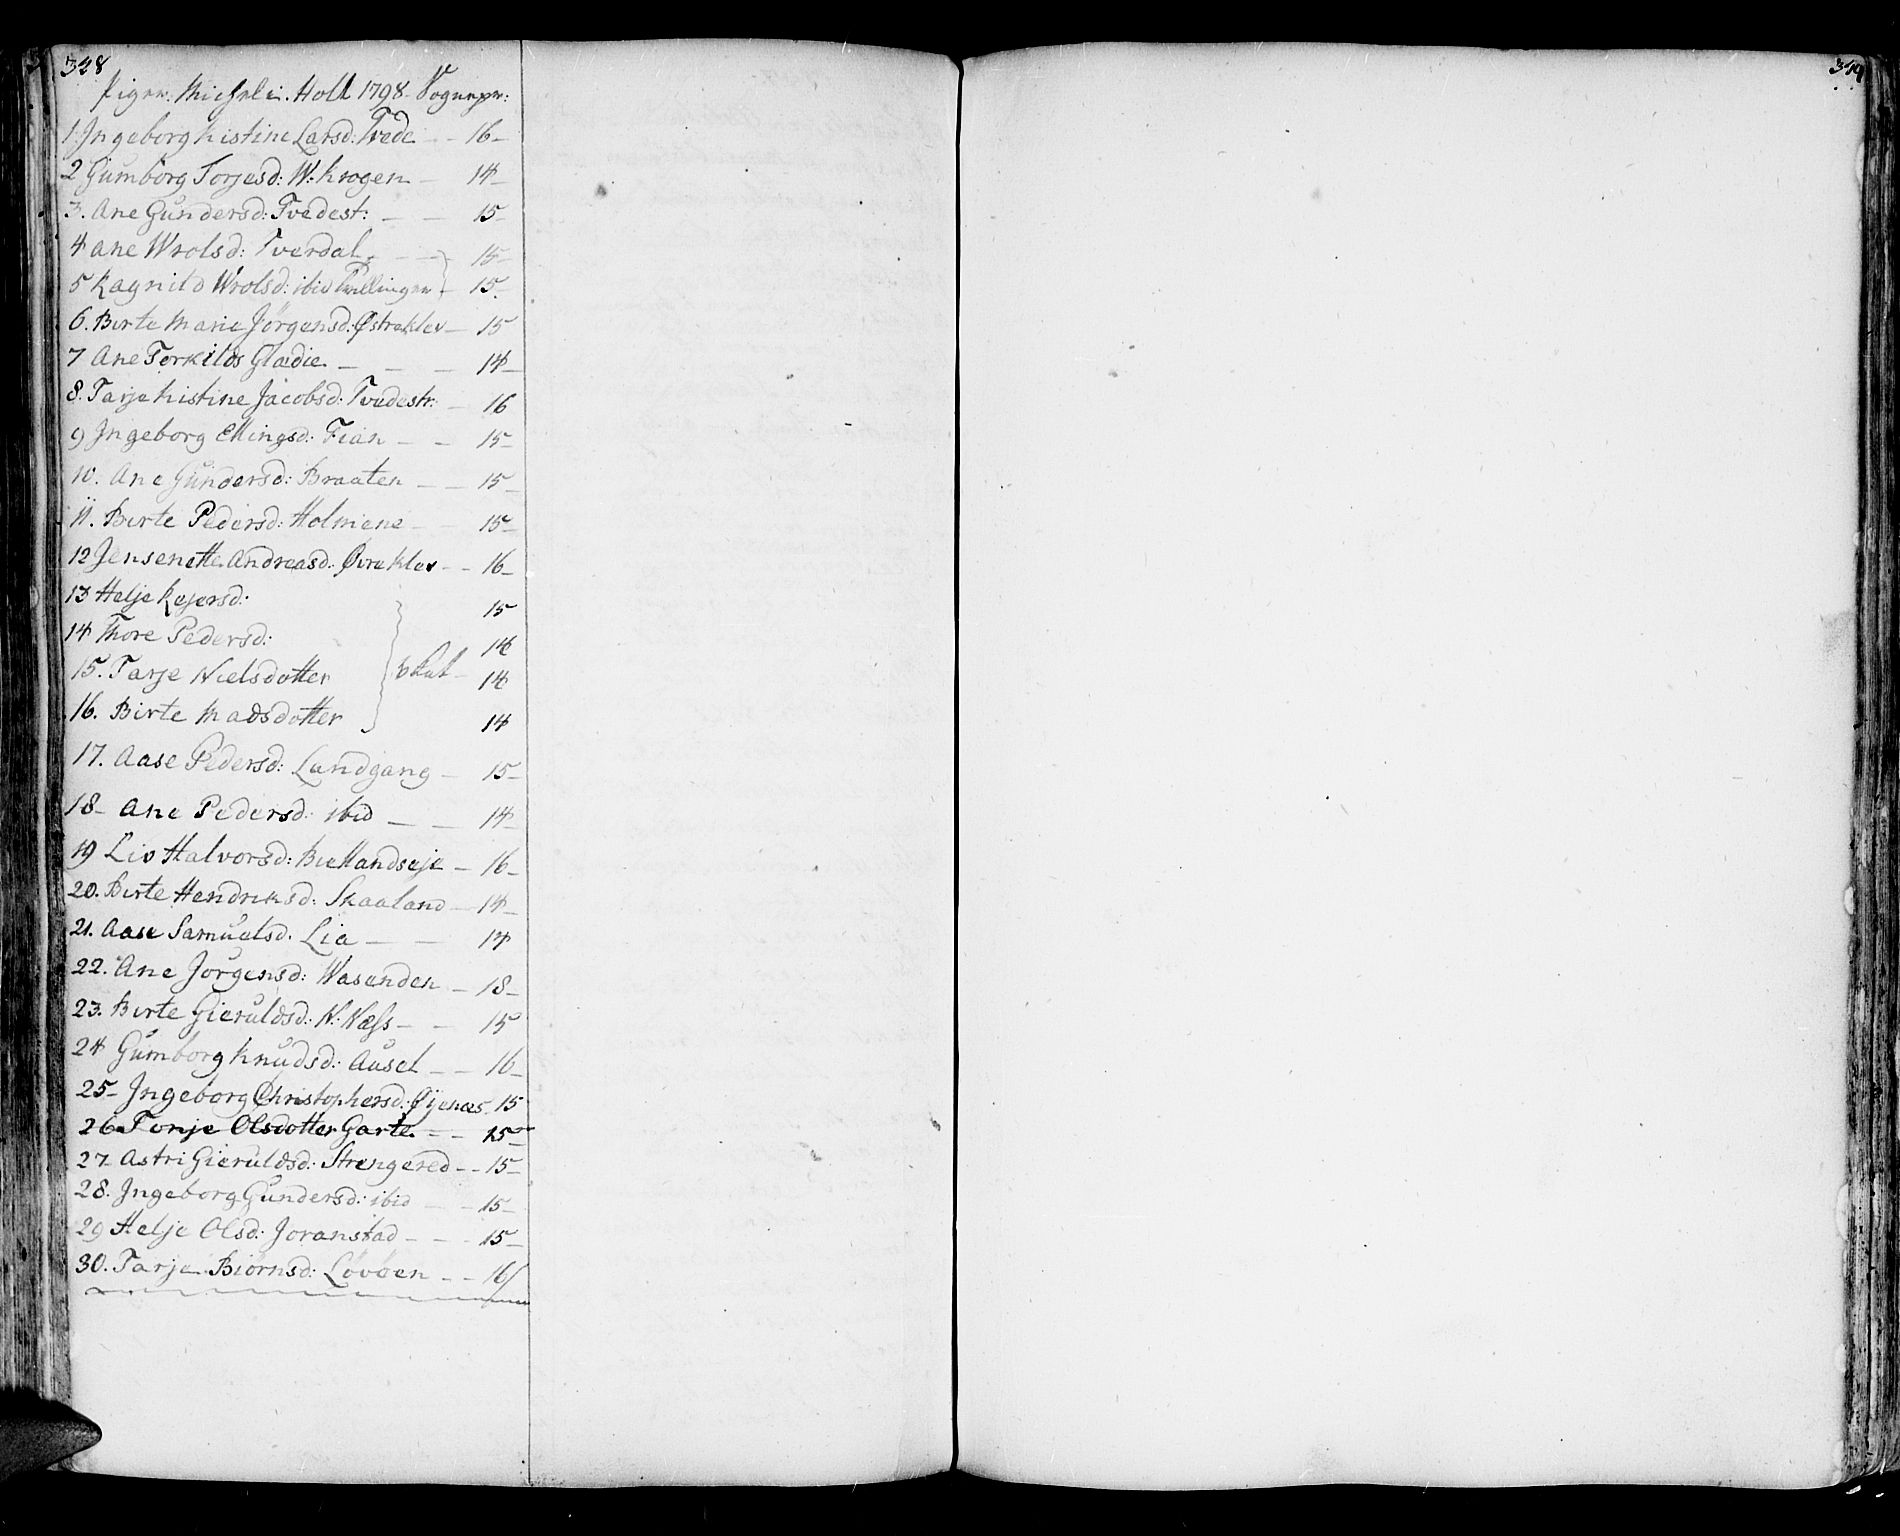 348
Piger. Micheli. Holt 1798. Sognepr:
1 Ingeborg Kistine Larsd: Tvede - - 16-
2 Gumborg Torjesd: W: Krogen - 14-
3. Ane Gundersd: Tvedest: - - 15-
4 Ane Wrolsd: Tverdal - - 15-
5 Ragnild Wrolsd: ibid Tvillinger - 15.
6. Birte Marie Jörgensd: Østreklev - 15
7 Ane Torkilds Glødie - - - 14-
8. Tarje Kistine Jacobsd: Tvedestr: - 16
9 Ingeborg Ellingsd: Fian - - 15-
10. Ane Gundersd: Braaten - - 15-
11. Birte Pedersd: Holmene - - 15-
12 Jensenette Andreasd: Øvreklev - - 16-
13 Helje Rejersd: 15
14 Thore Pedersd: 14
15. Tarje Nielsdotter 14
16. Birte Madsdotter 14
17. Aase Pedersd: Landgang - 15-
18- Ane Pedersd: ibid - - 14-
19 Liv Halvorsd: Biellandseje - 16-
20. Birte Hendriksd: Skaaland - 14-
21. Aase Samuelsd. Lia - - 14
22. Ane Jorgensd: Wasenden - 18-
23. Birte Gieruldsd: N: Næss - - 15
24 Gumborg Knudsd: Ausel - - 16-
25- Ingeborg Christophersd: Øjenæs 15
26- Tonje Olsdotter Garte - - 15-
27- Astri Gieruldsd: Strengered - - 15-
28. Ingeborg Gundersd: ibid - - 15-
29 Helje Olsd: Joranstad - - - 15-
30. Tarje Biörnsd: Lövöen - - 16/
349